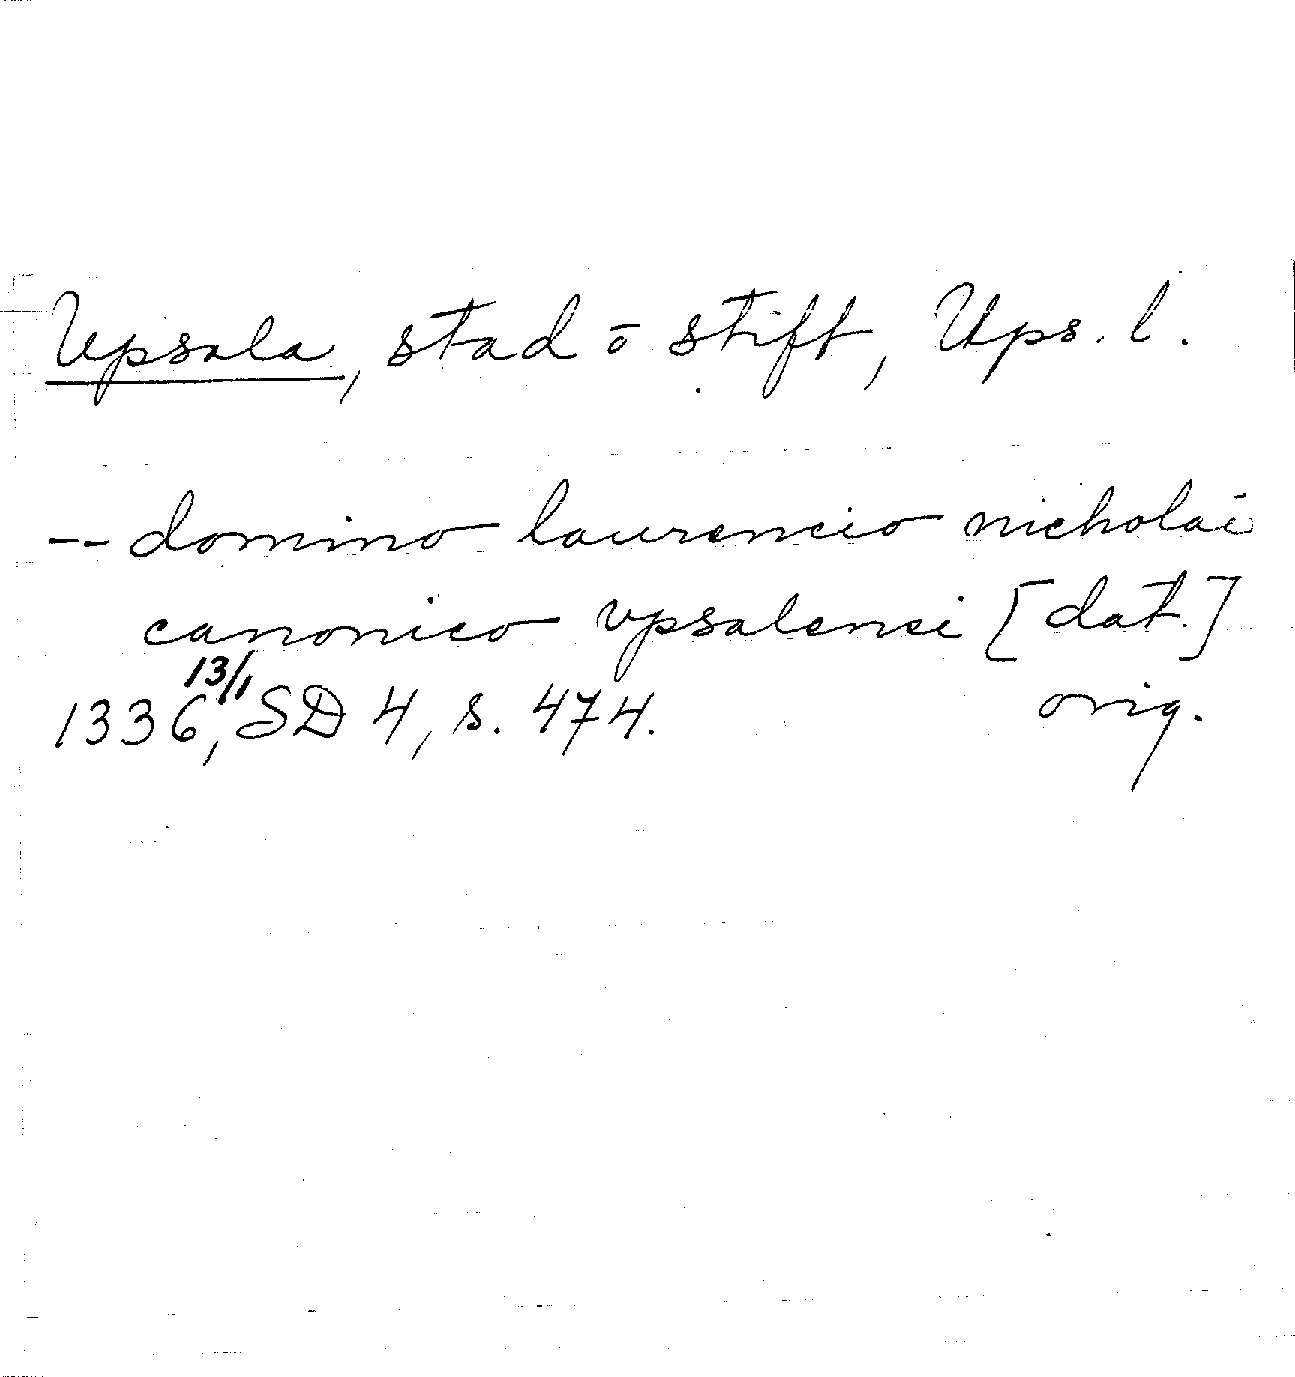 Upsala, stad o stift, Ups. l.
-- domino laurencio nicholai
canonico vpsalensi [dat.]
1336 13/1, SD 4, s. 474. orig.